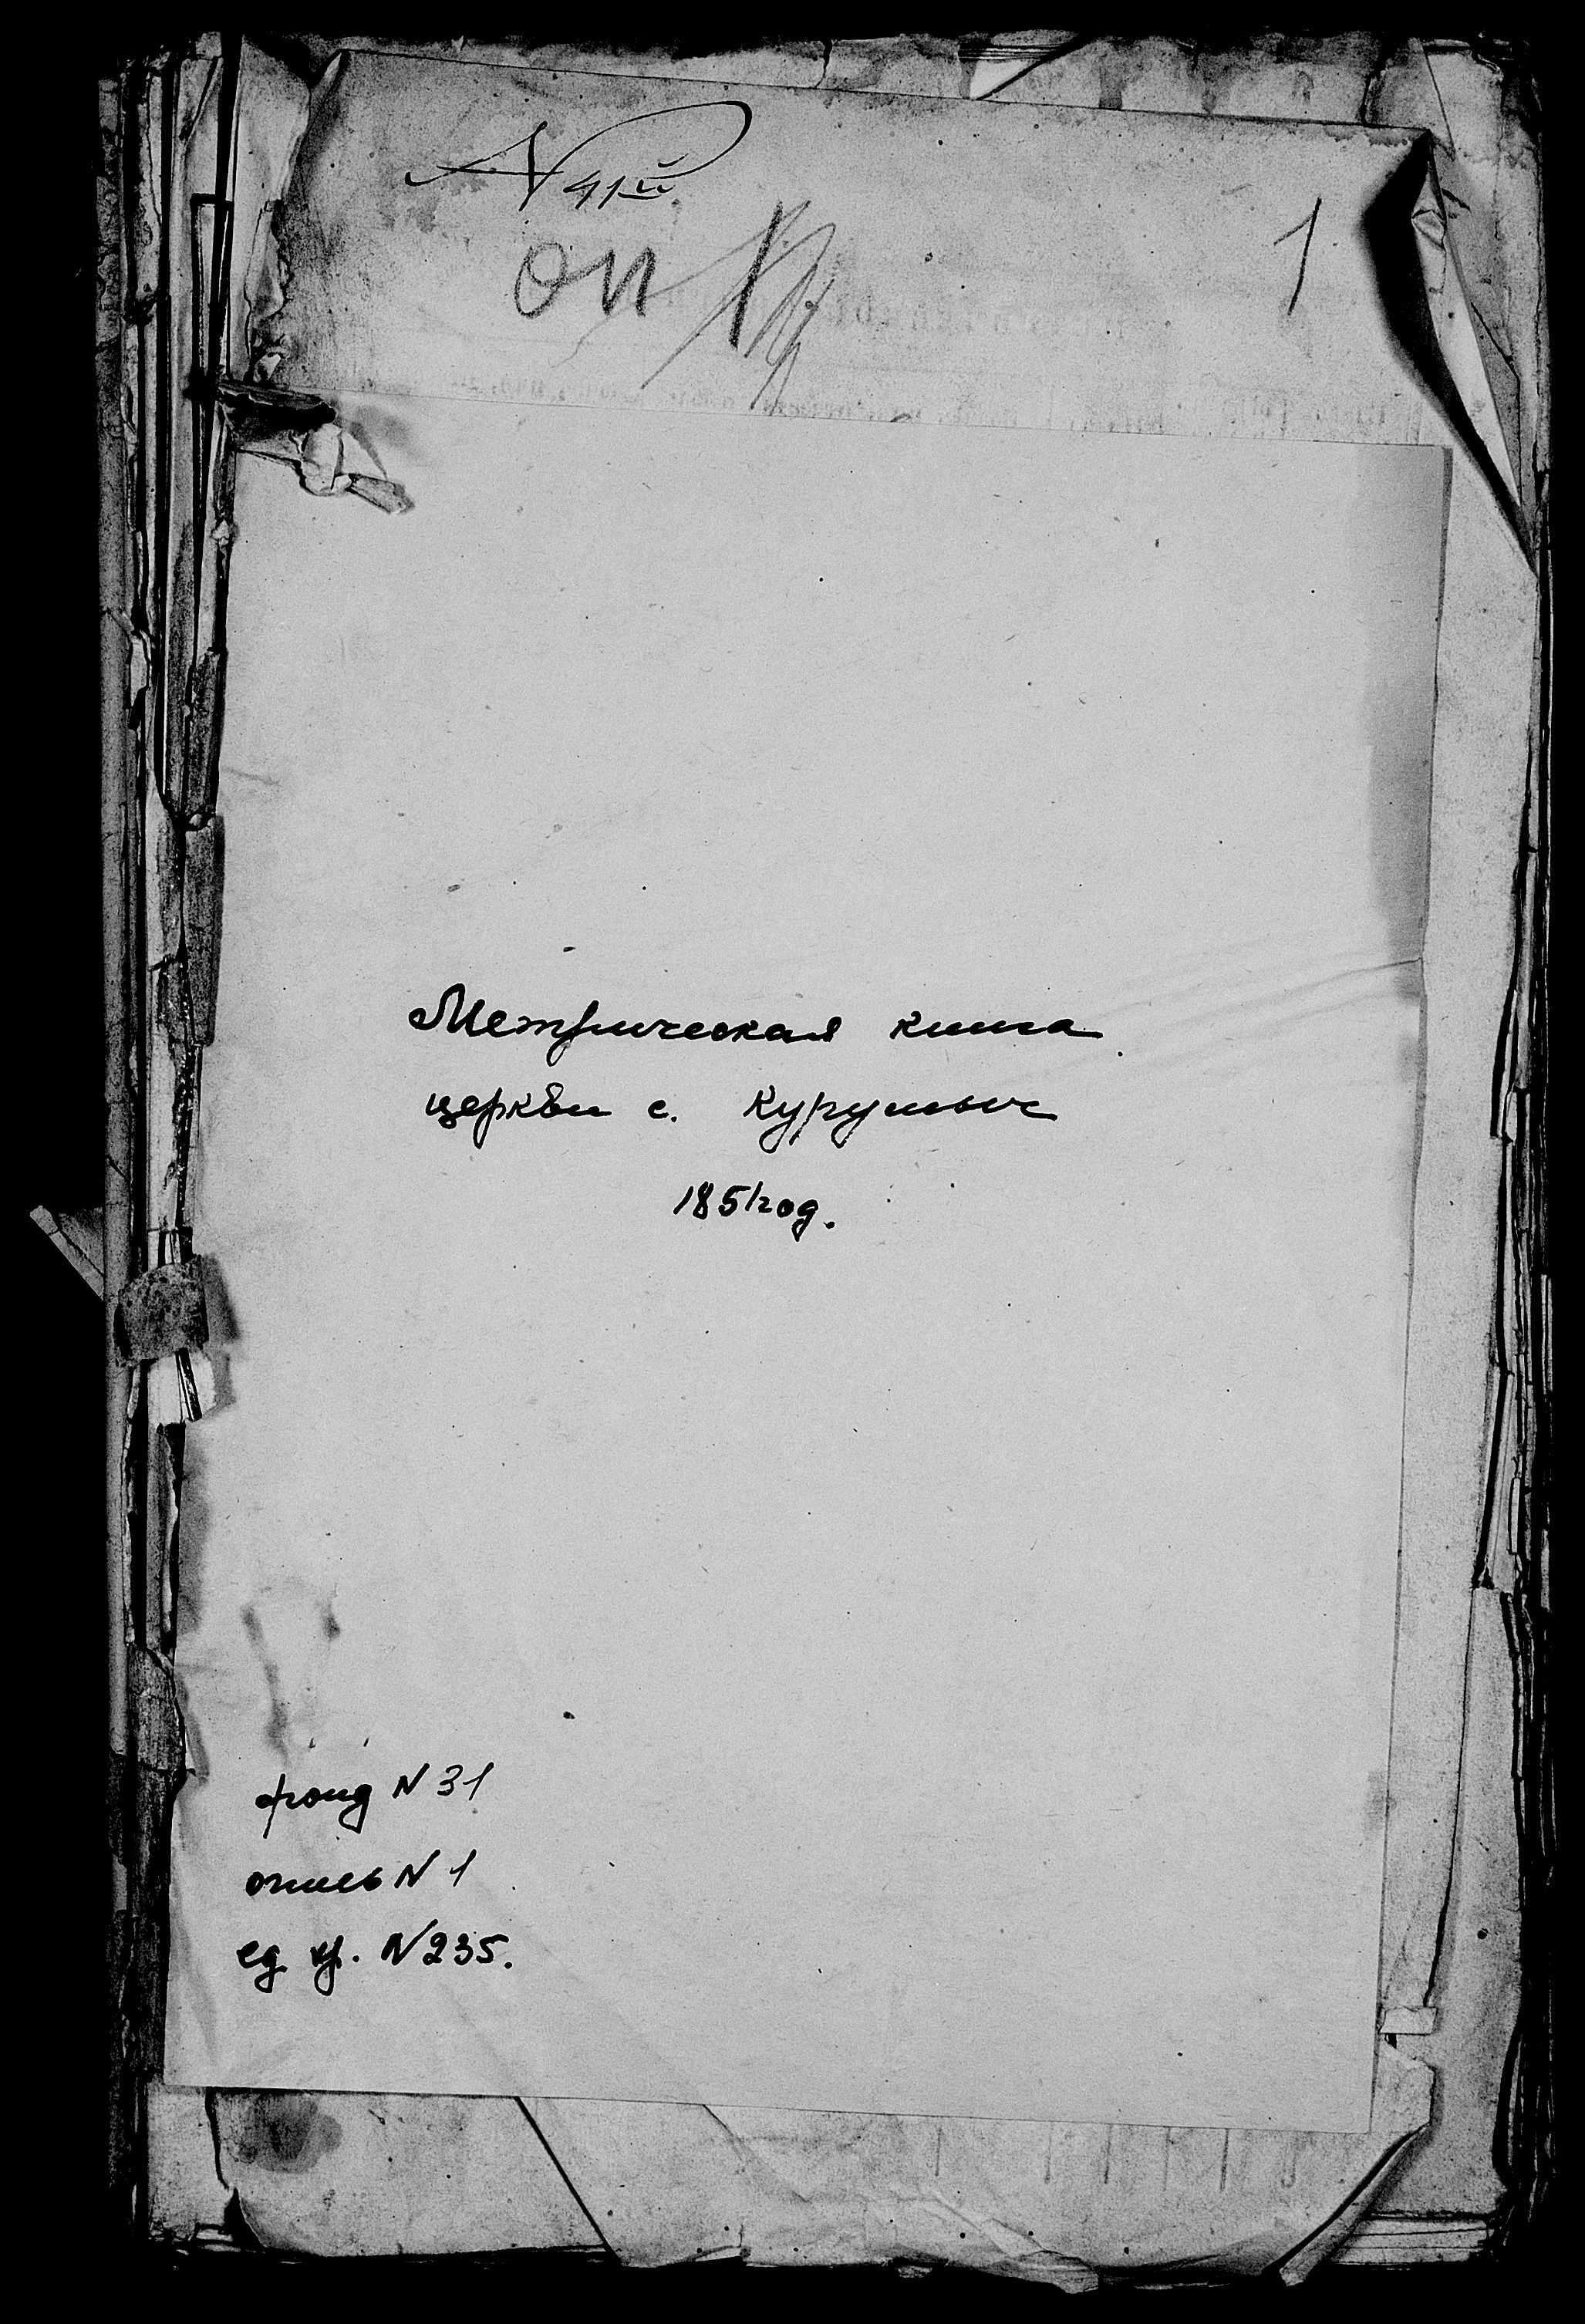 N 41й
оп
1
Метрическая книга
церкви с. Курумоч
1851 год.
фонд N 31
опись N 1
ед хр. N 235.